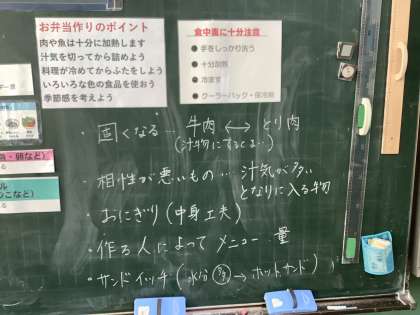 お弁当作りのポイント
肉や魚は十分に加熱します
汁気を切ってから詰めよう
料理が冷めてからふたをしよう
いろいろな色の食品を使おう
季節感を考えよう
食中毒に十分注意
● 手をしっかり洗う
● 十分加熱
● 冷ます
● クーラーバック・保冷剤
・固くなる… 牛肉 ⟷ とり肉
(汁物にすると…)
・相性が悪いもの… 汁気が多い
となりに入る物
・おにぎり(中身工夫)
・作る人によって メニュー 量
・サンドイッチ( 水分 → ホットサンド)
・卵など)